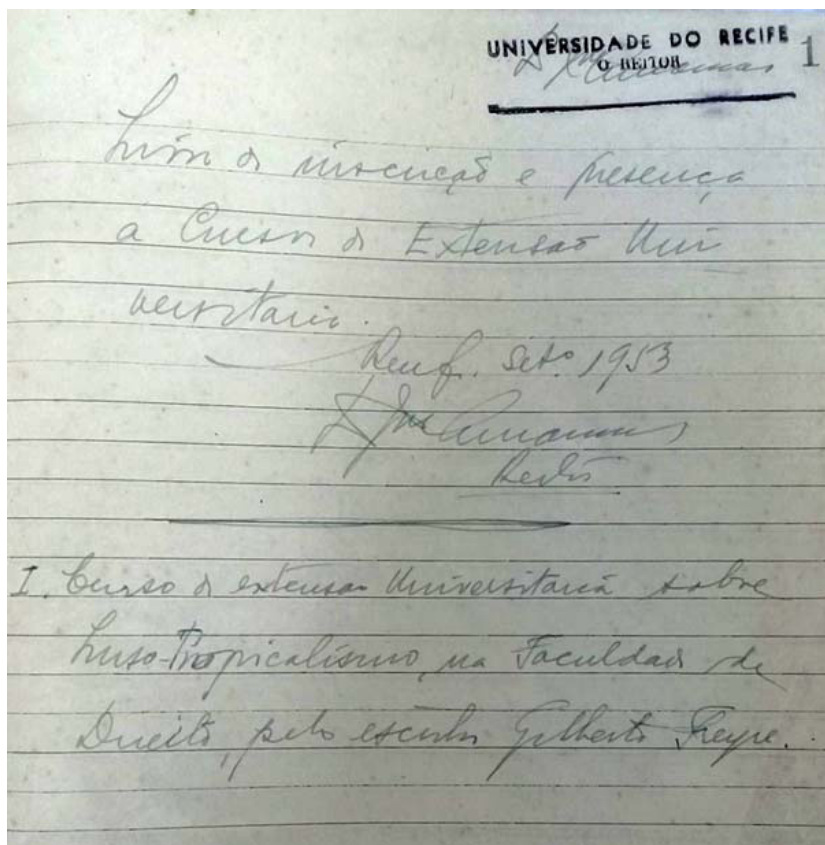 UNIVERSIDADE DO RECIFE 1
O REITOR
Livro de inscrição e presença
a Cursos de Extensão Uni
versitaria.
Recife. Setº 1953
Reitor
I. Curso de extensão Universitaria sobre
Luso-Tropicalismo, na Faculdade de
Direito, pelo escritor Gilberto Freyre.